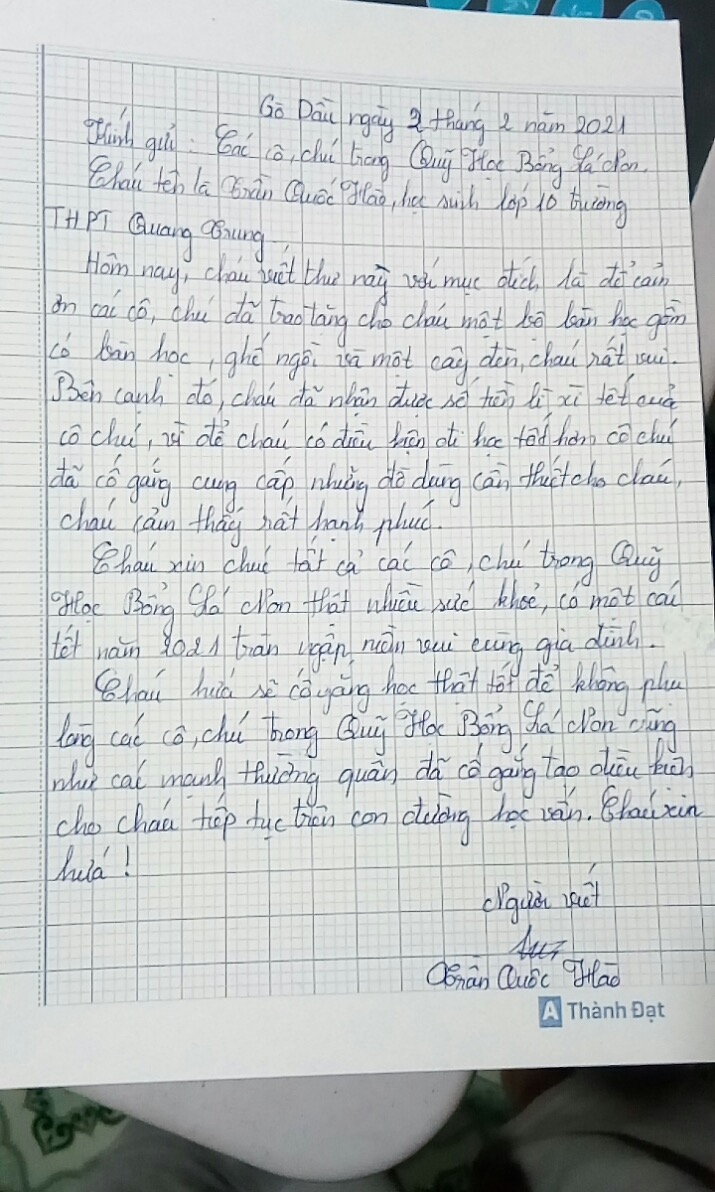 Gò Dầu ngày 2 tháng 2 năm 2021
Kính gửi: Các cô, chú trong Quỹ Học Bổng Lá Non.
Cháu tên là Trần Quốc Hào, học sinh lớp 10 trường
THPT Quang Trung.
Hôm nay, cháu viết thư này với mục đích là để cảm
ơn các cô, chú đã trao tặng cho cháu một bộ bàn học gồm
có bàn học, ghế ngồi và một cây đèn, cháu rất vui.
Bên cạnh đó, cháu đã nhận được số tiền lì xì tết của
cô chú, vì để cháu có điều kiện đi học tốt hơn cô chú
đã cố gắng cung cấp những đồ dùng cần thiết cho cháu,
cháu cảm thấy rất hạnh phúc.
Cháu xin chúc tất cả các cô, chú trong Quỹ
Học Bổng Lá Non thật nhiều sức khoẻ, có một cái
tết năm 2021 tràn ngập niềm vui cùng gia đình.
Cháu hứa sẽ cố gắng học thật tốt để không phụ
lòng các cô, chú trong Quỹ Học Bổng Lá Non cũng
như các mạnh thường quân đã cố gắng tạo điều kiện
cho cháu tiếp tục trên con đường học vấn. Cháu xin
hứa!
Người viết
Trần Quốc Hào
A Thành Đạt